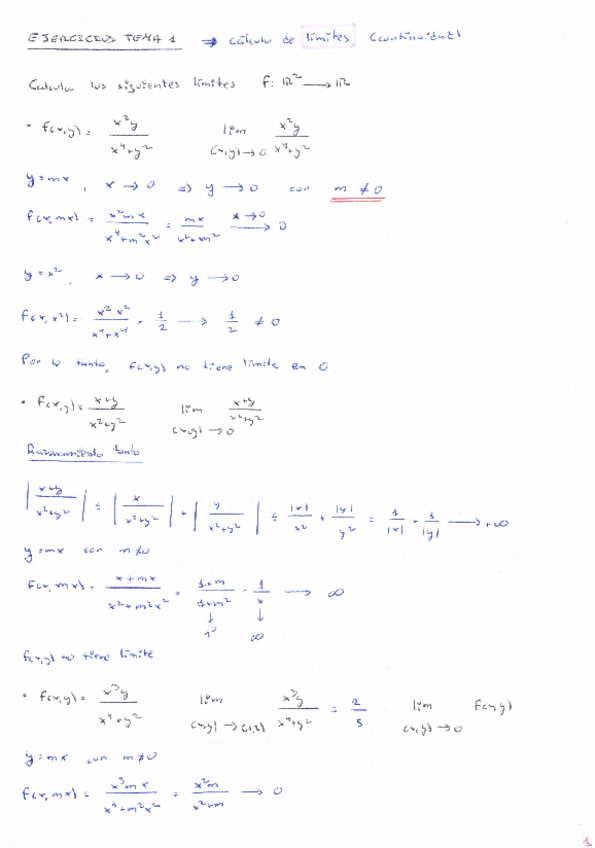 EJERCICIOS TEMA 1 ⇒ cálculo de límites (continuidad)
Calcula los siguientes límites f: ℝ² → ℝ
• f(x,y) = x²y / (x⁴+y²) lim (x,y)→0 x²y / (x⁴+y²)
y = mx, x → 0 ⇒ y → 0 con m ≠ 0
f(x,mx) = x²mx / (x⁴+m²x²) = mx / (x²+m²) x→0 → 0
y = x², x → 0 ⇒ y → 0
f(x,x²) = x²x² / (x⁴+x⁴) = 1/2 → 1/2 ≠ 0
Por lo tanto, f(x,y) no tiene límite en 0
• f(x,y) = x+y / (x²+y²) lim (x,y)→0 x+y / (x²+y²)
Razonamiento tonto
| x+y / (x²+y²) | ≤ | x / (x²+y²) | + | y / (x²+y²) | ≤ |x| / x² + |y| / y² = 1/|x| + 1/|y| → +∞
y = mx con m≠0
f(x,mx) = x+mx / (x²+m²x²) = 1+m / (1+m²) · 1/x → ∞
↓ ↓
∞
f(x,y) no tiene límite
• f(x,y) = x³y / (x⁴+y²) lim (x,y)→(1,2) x³y / (x⁴+y²) = 2/5 lim (x,y)→0 f(x,y)
y = mx con m≠0
f(x,mx) = x³mx / (x⁴+m²x²) = x²m / (x²+m) → 0
1